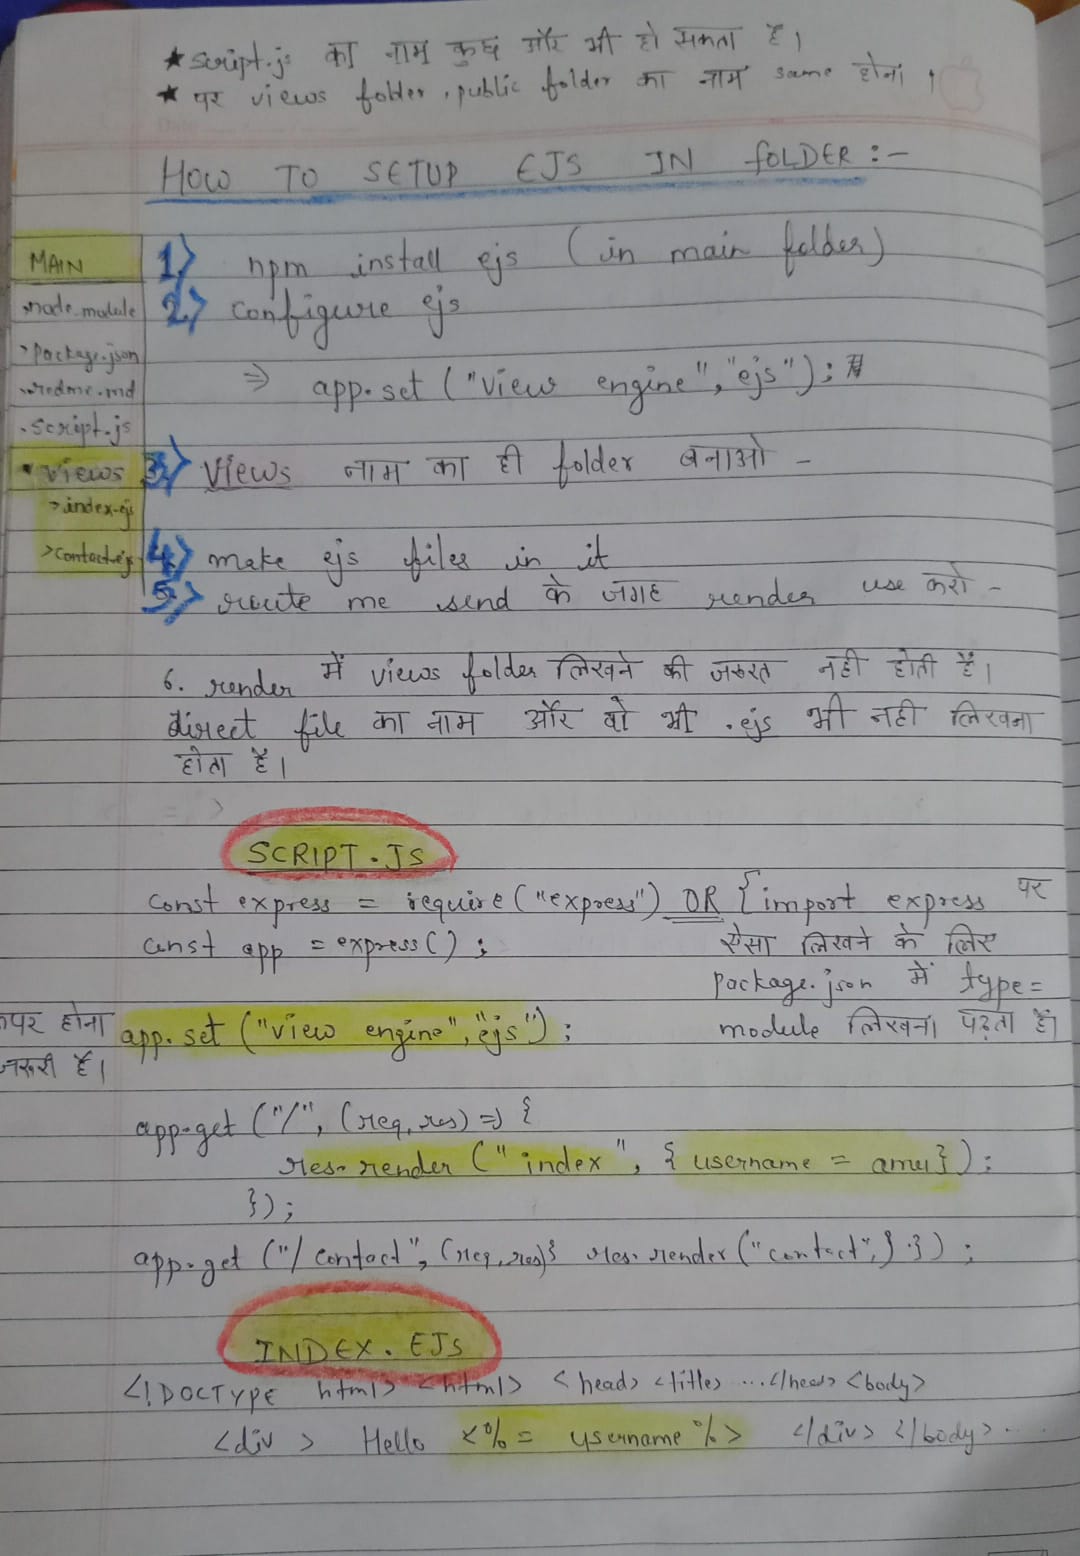 ★ script.js का नाम कुछ और भी हो सकता है।
★ पर views folder, public folder का नाम same होना।
Date
HOW TO SETUP EJS IN FOLDER :-
MAIN
node_module
>package.json
redme.md
.script.js
• views
>index.ejs
>contact.ejs
1> npm install ejs (in main folder)
2> configure ejs
⇒ app.set ("view engine", "ejs");
3> views नाम का ही folder बनाओ -
4> make ejs files in it
5> route me send के जगह render use करो -
6. render में views folder लिखने की जरुरत नही होती है।
direct file का नाम और वो भी .ejs भी नही लिखना
होता है।
SCRIPT.JS
const express = require ("express") OR {import express पर
const app = express();
ऐसा लिखने के लिए
package.json में type=
module लिखना पड़ता है।
ऊपर होना
जरूरी है।
app.set ("view engine", "ejs");
app.get ("/", (req, res) => {
res.render ("index", { username = amu});
});
app.get ("/contact", (req, res){ res.render ("contact",} });
INDEX.EJS
<!DOCTYPE html> <html> <head> <title> ... </head> <body>
<div > Hello <%= username %> </div> </body> ...